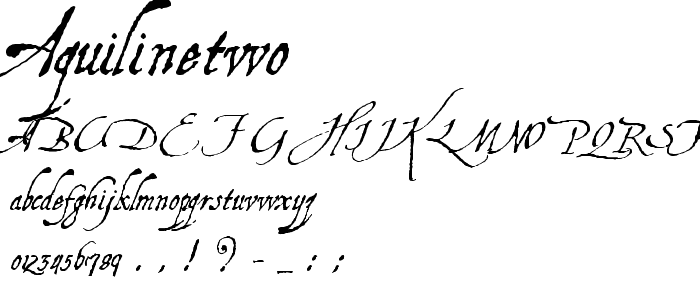 Aquilinetwo
ABCDEFGHIJKLMNOPQRST
abcdefghijklmnopqrstuvwxyz
0123456789 . , ! ? - _ : ;